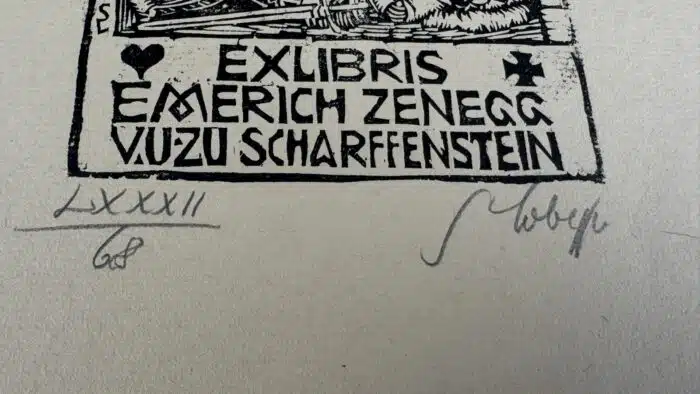 SL
EXLIBRIS
EMERICH ZENEGG
V.U.ZU SCHARFFENSTEIN
LXXXII
68